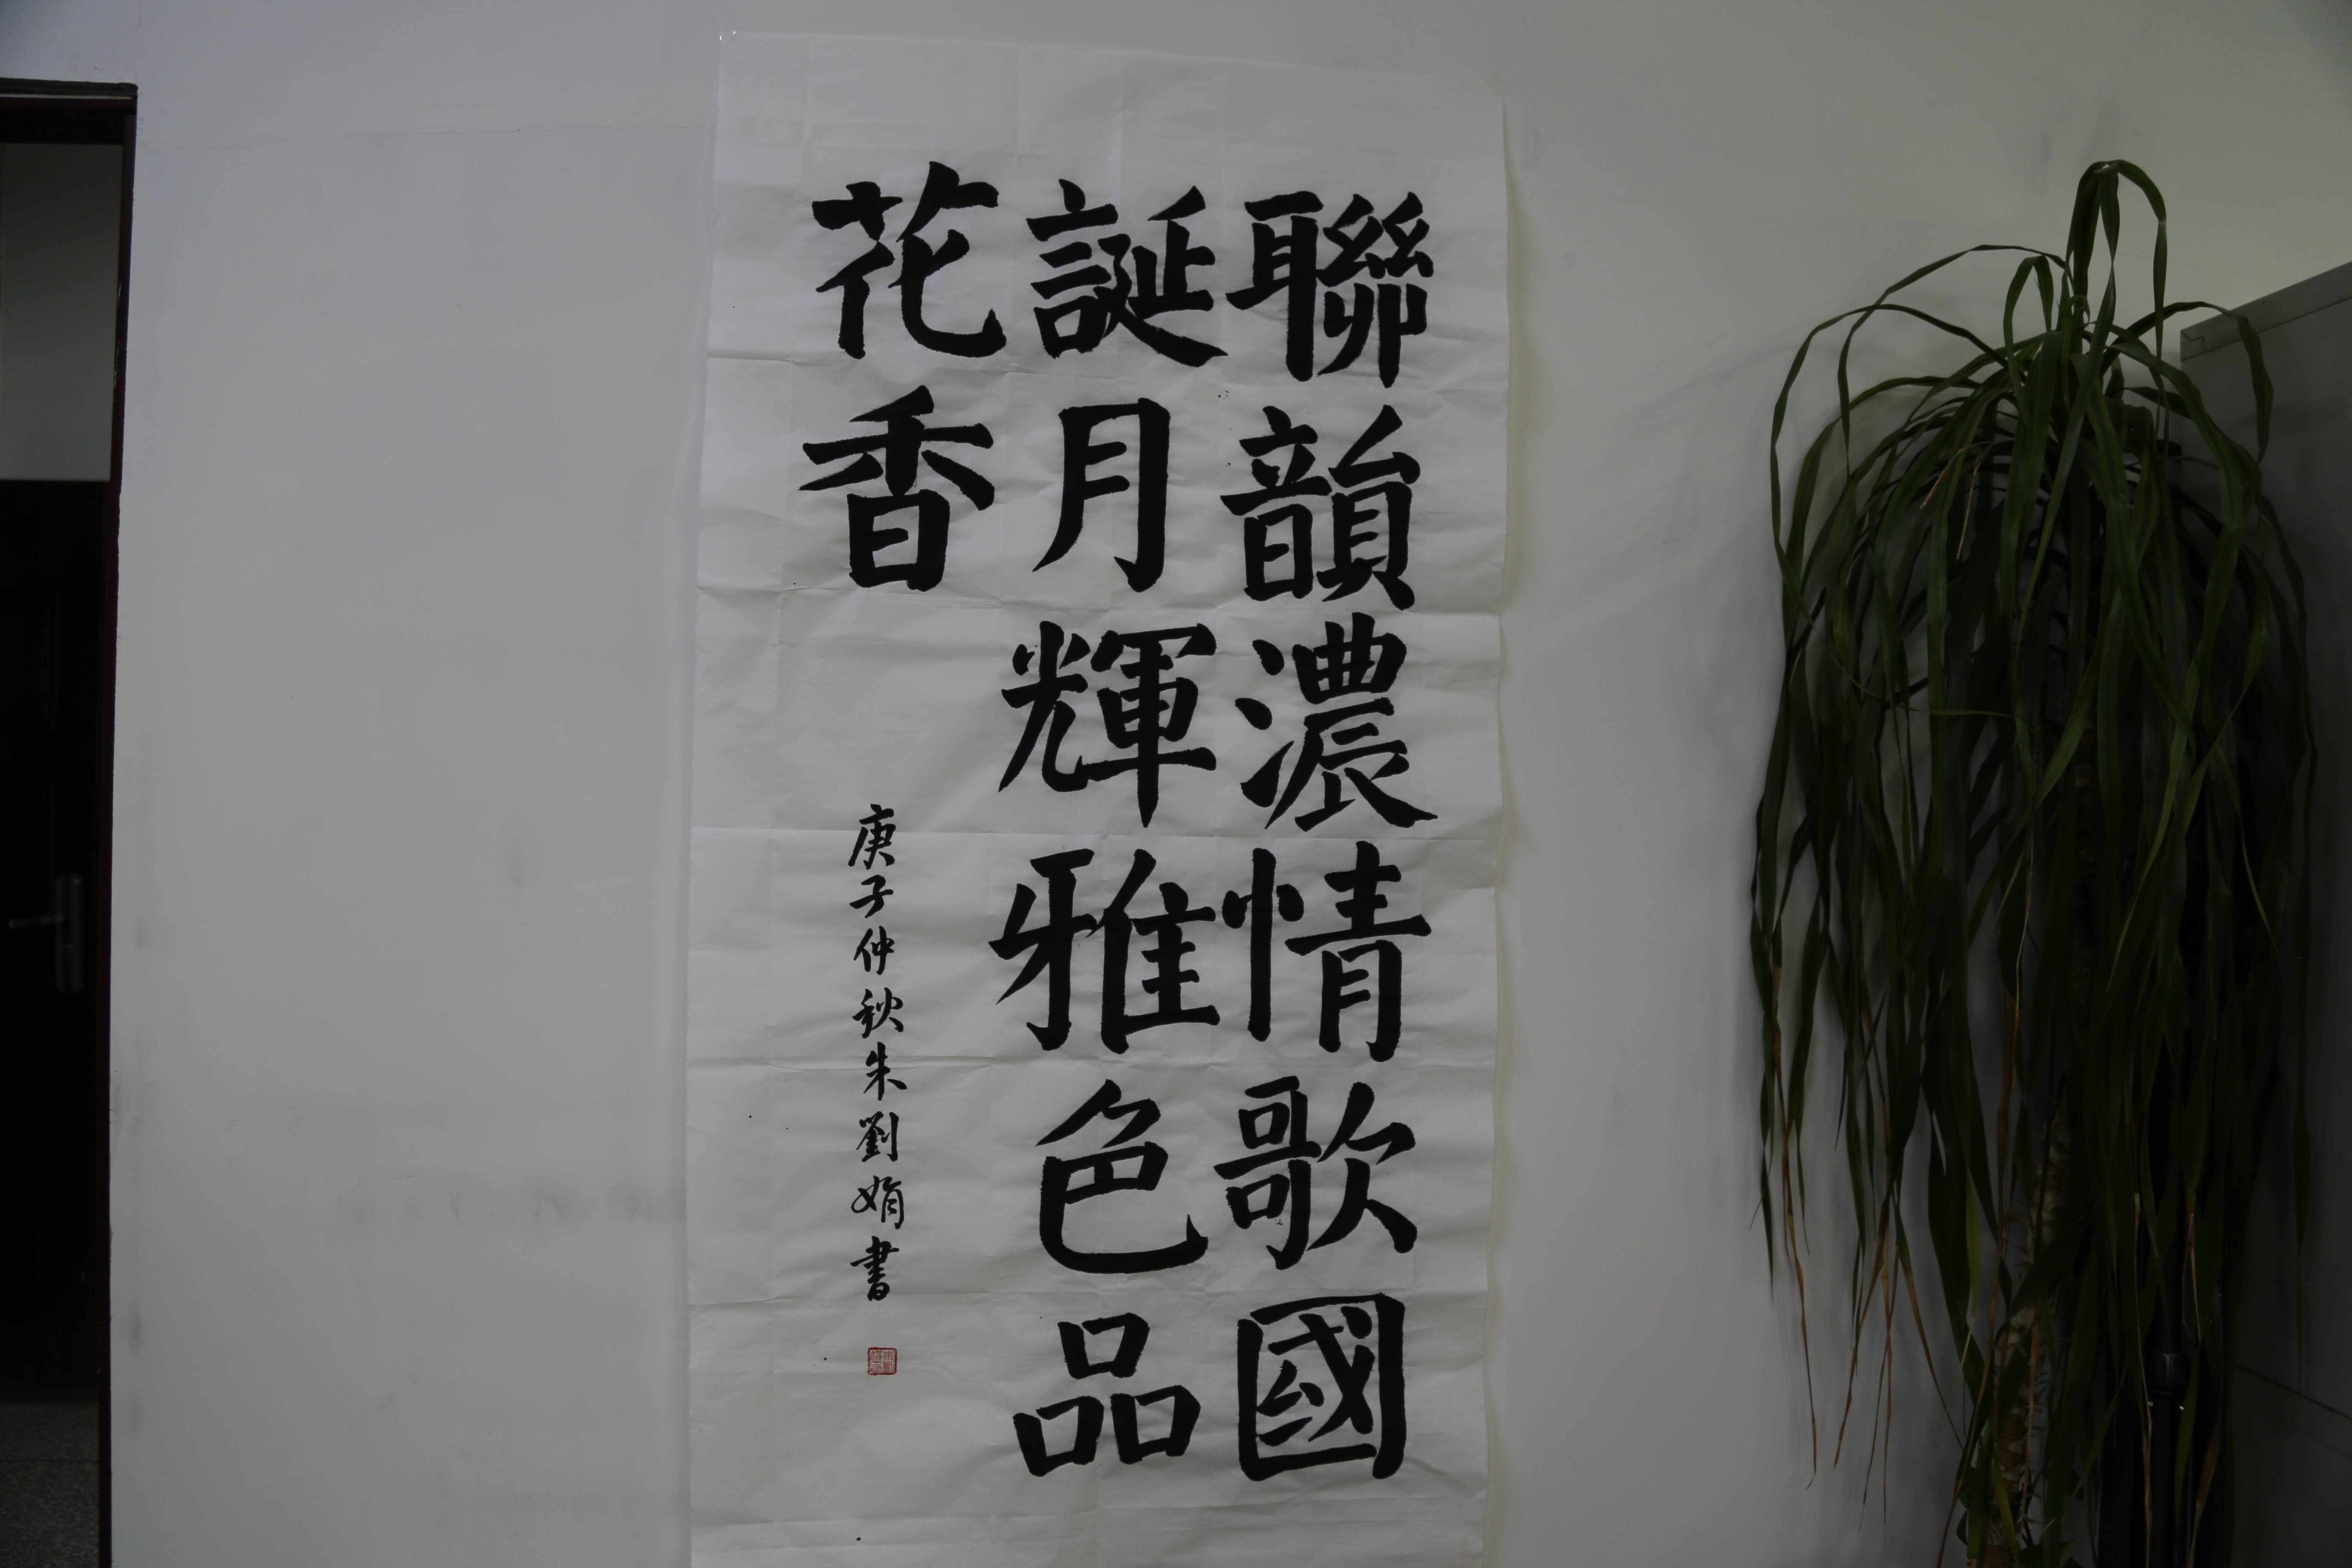 聯韻濃情歌國
誕月輝雅色品
花香
庚子仲秋朱劉娟書